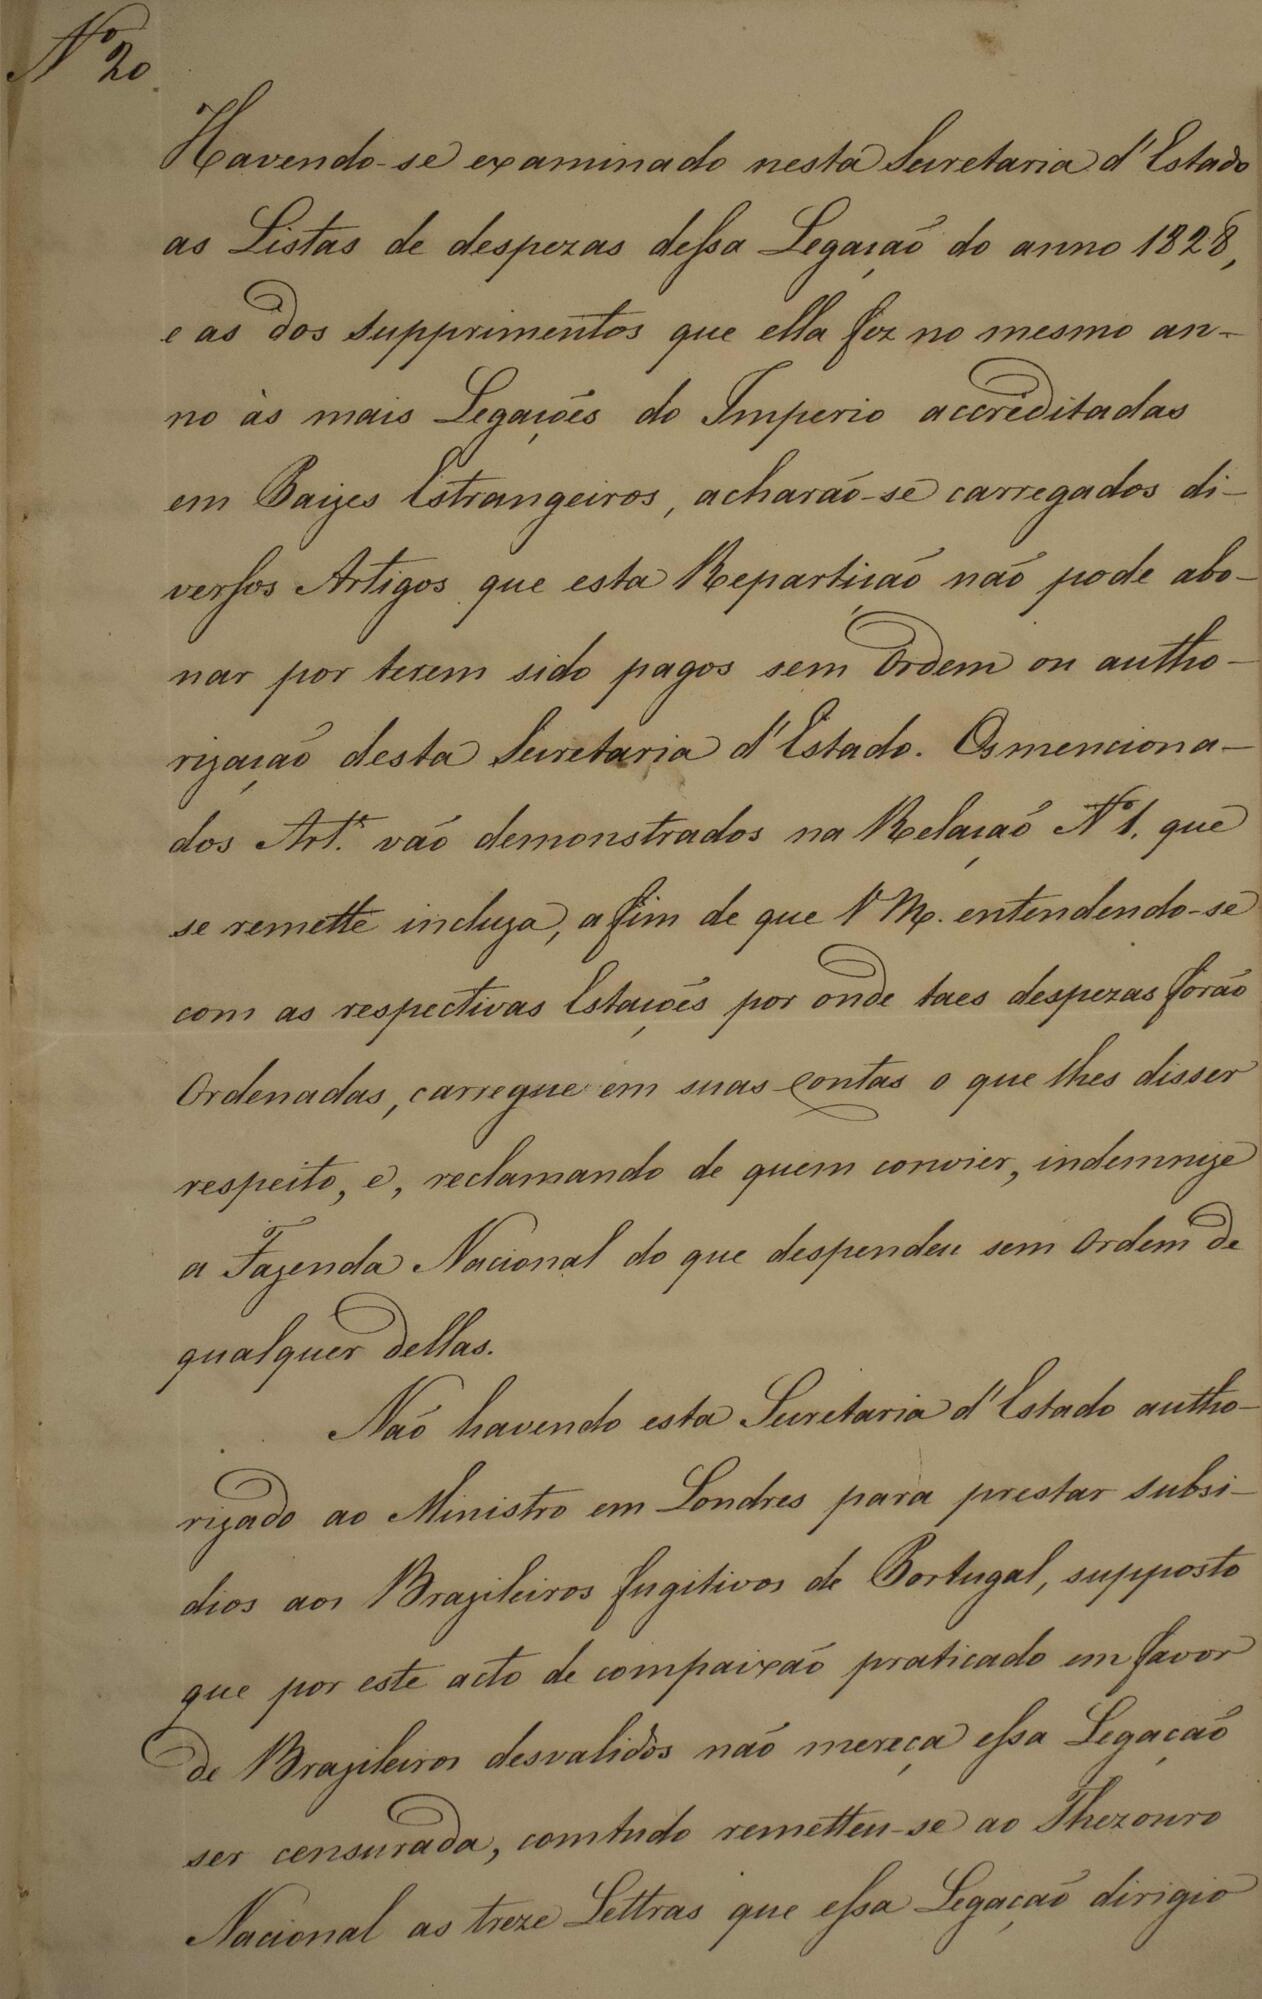 Nº 20
Havendo-se examinado nesta Secretaria d'Estado
as Listas de despezas dessa Legação do anno 1828,
e as dos supprimentos que ella fez no mesmo an-
no às mais Legações do Imperio accreditadas
em Paizes Estrangeiros, acharão-se carregados di-
versos Artigos que esta Repartição não pode abo-
nar por terem sido pagos sem Ordem ou autho-
rização desta Secretaria d'Estado. Os menciona-
dos Art.ˢ vão demonstrados na Relação Nº 1. que
se remette incluza, a fim de que V M. entendendo-se
com as respectivas Estações por onde taes despezas forão
Ordenadas, carregue em suas Contas o que lhes disser
respeito, e, reclamando de quem convier, indemnize
a Fazenda Nacional do que despendeu sem Ordem de
qualquer dellas.
Não havendo esta Secretaria d'Estado autho-
rizado ao Ministro em Londres para prestar subsi-
dios aos Brazileiros fugitivos de Portugal, supposto
que por este acto de compaixão praticado em favor
de Brazileiros desvalidos não mereça essa Legação
ser censurada, comtudo remetteu-se ao Thezouro
Nacional as treze Lettras que essa Legação dirigio